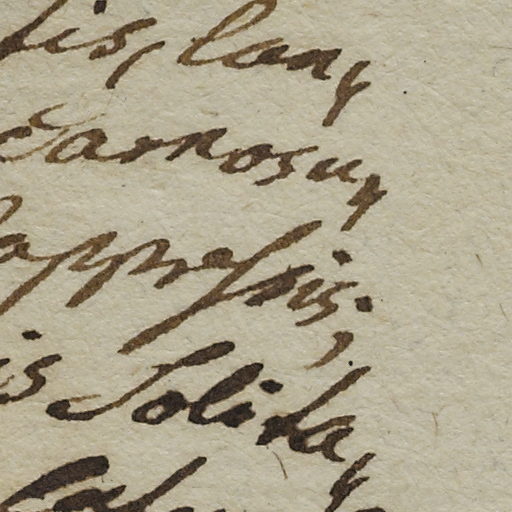 tis, lan,
carnosu,
appressis;
is solita,